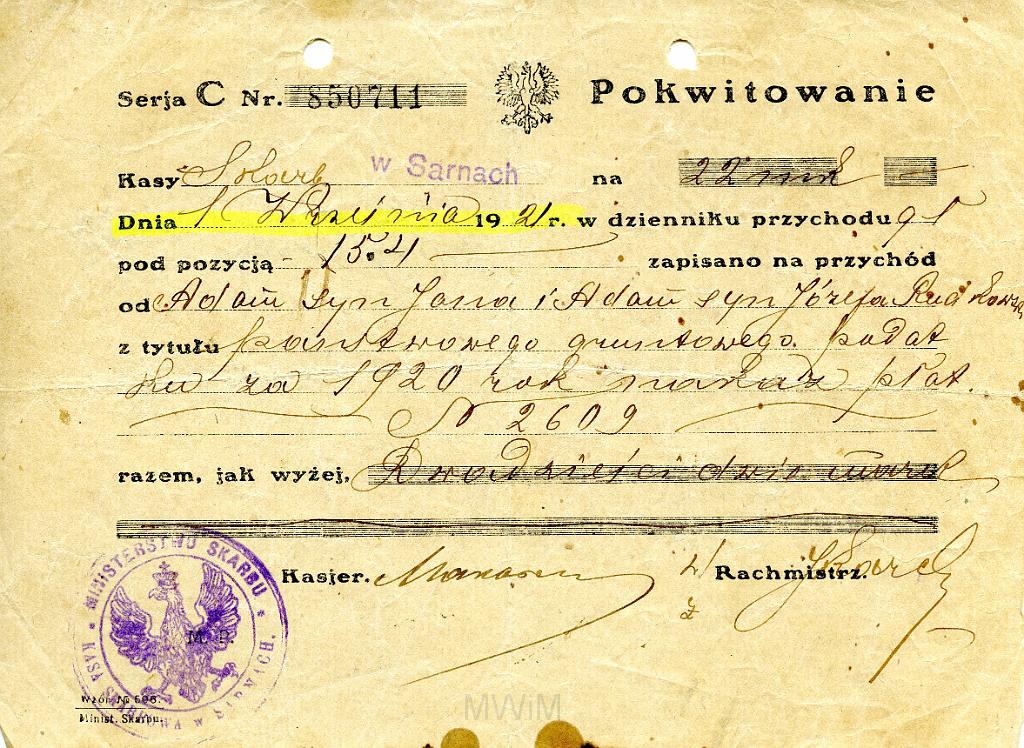 Serja C Nr. 850711 Pokwitowanie
Kasy Skarb w Sarnach na 22 mk
Dnia 1 Września 1921 r. w dzienniku przychodu 91
pod pozycją 15.4 zapisano na przychód
od Adam syn Jana i Adam syn Józefa
z tytułu państwowego gruntowego podat
ku za 1920 rok nakaz płat.
№ 2609
razem, jak wyżej, Dwadzieści dwie mark
Kasjer. Rachmistrz.
MINISTERSTWO SKARBU
KASA SKARBOWA w SARNACH.
M. P.
Wzór № 596.
Minist. Skarbu.
MWiM